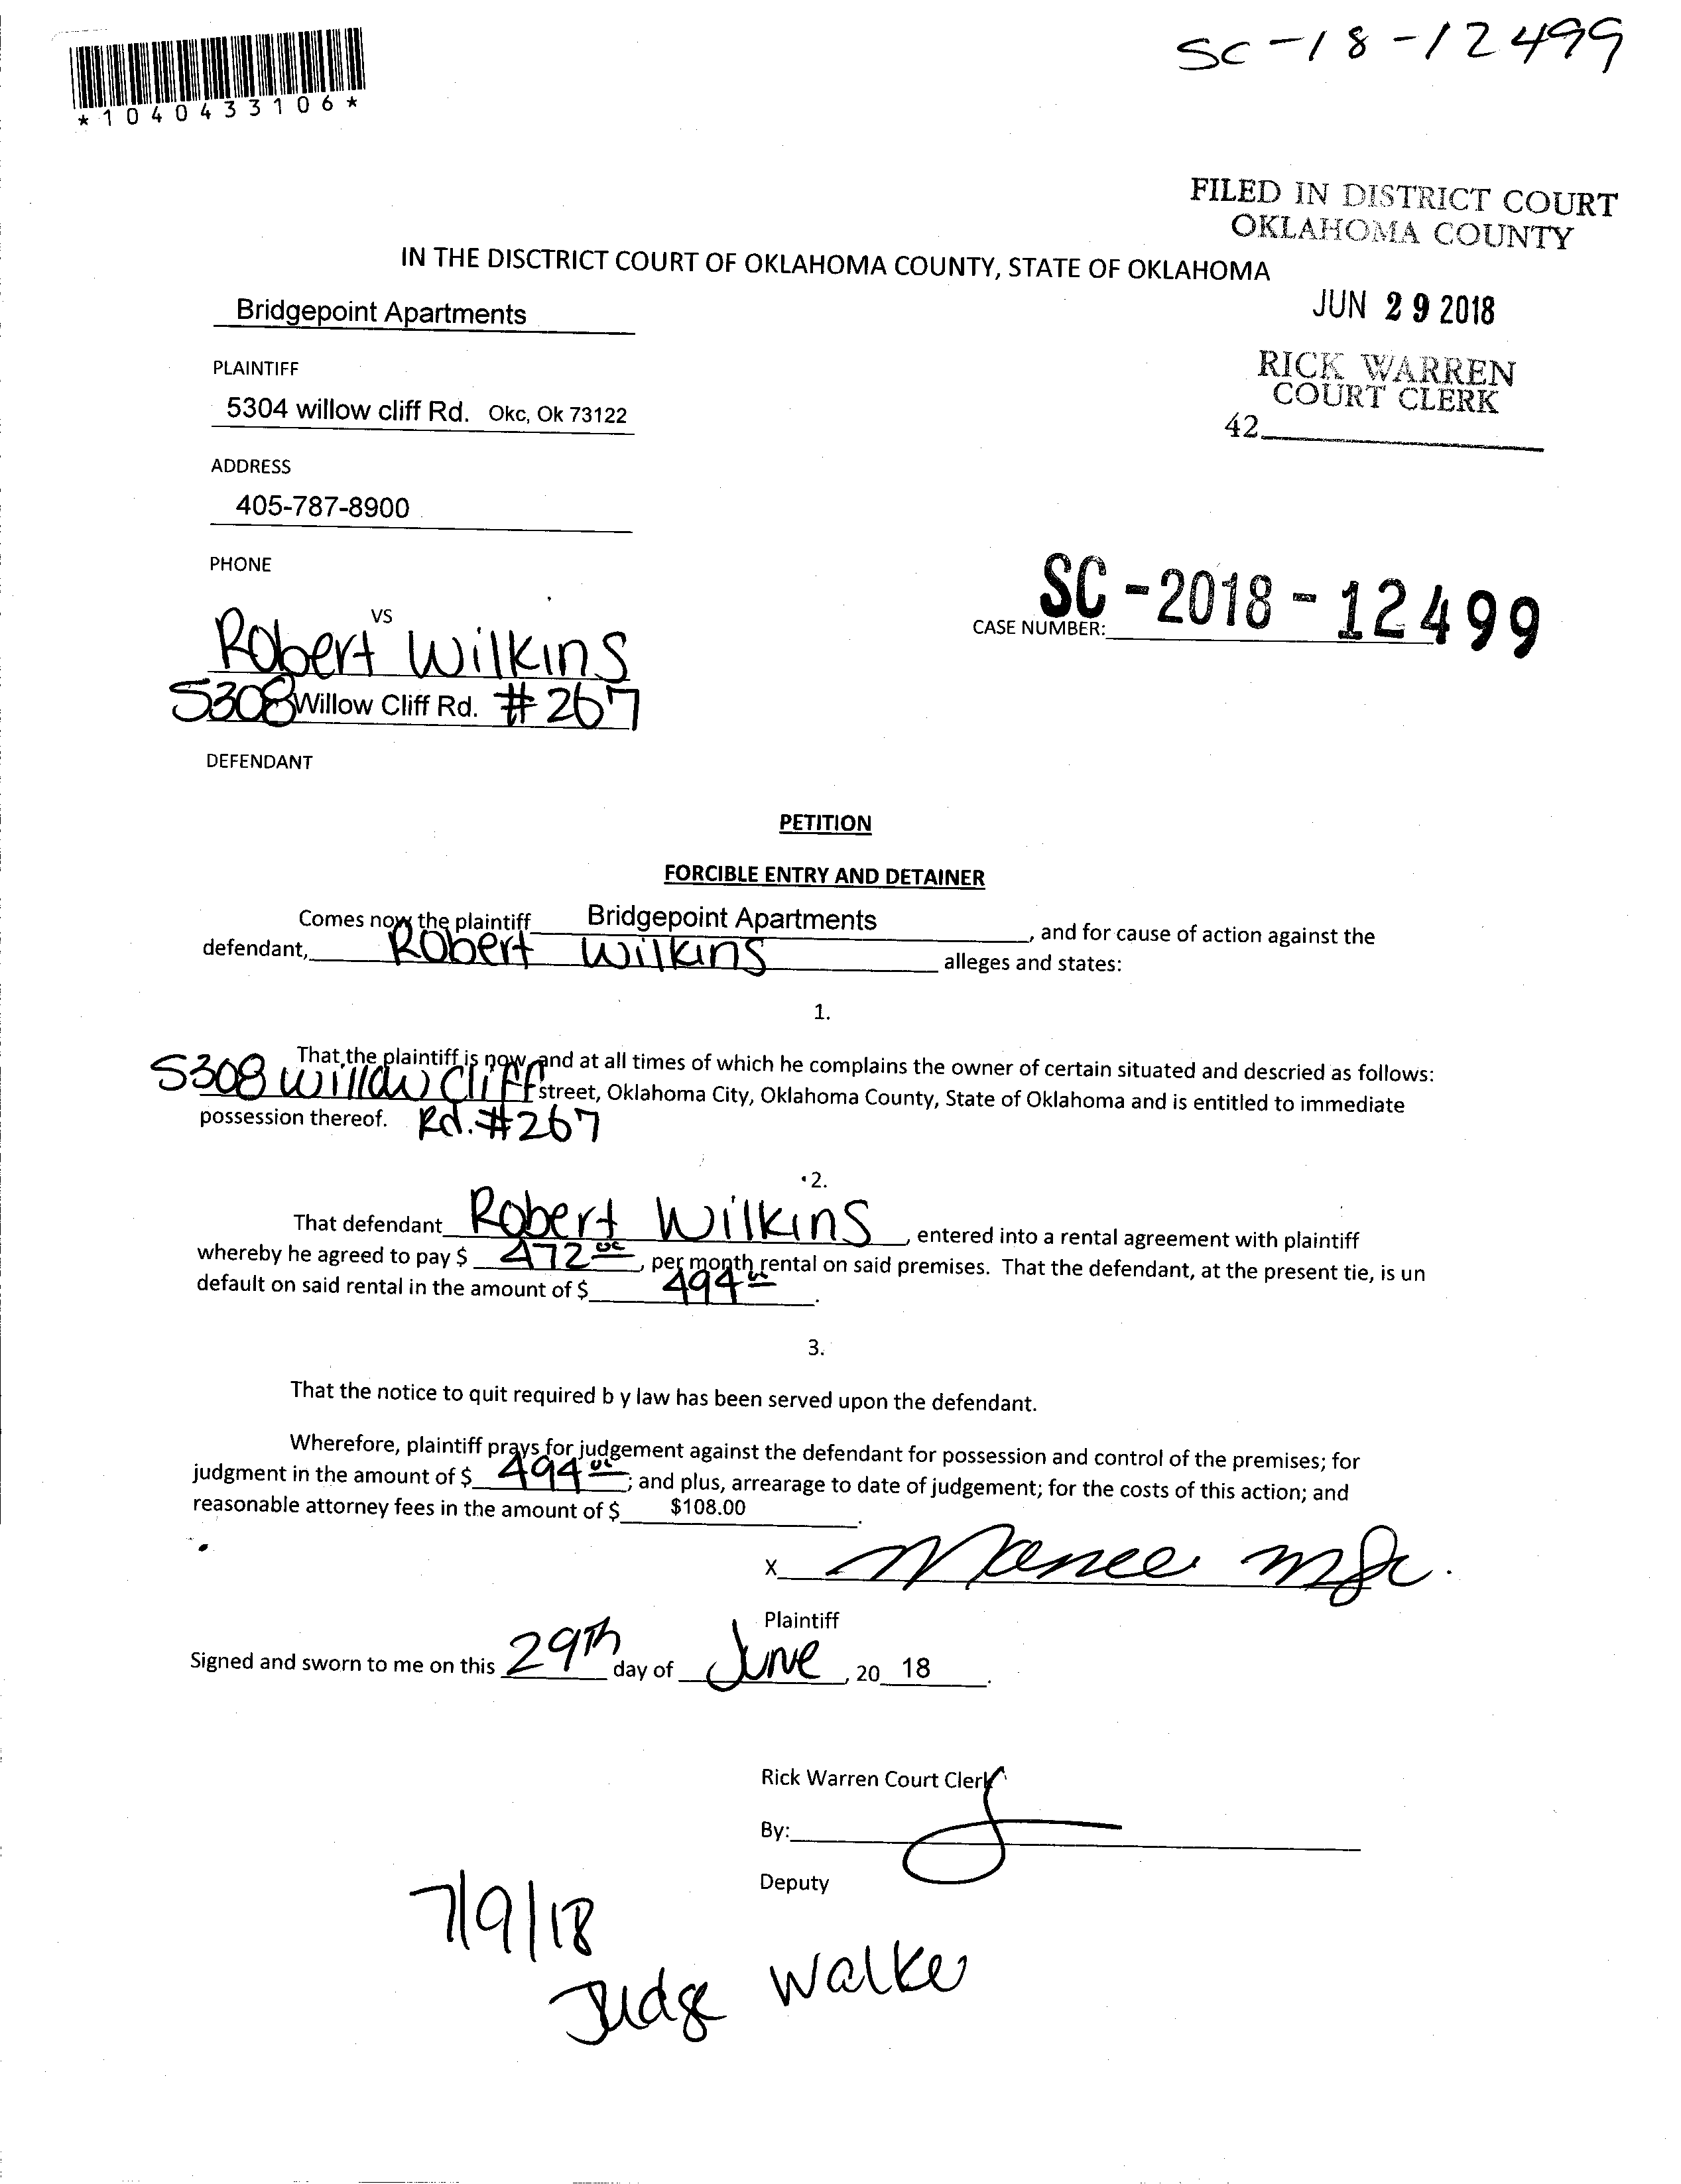 SC-18-12499
*1040433106*
FILED IN DISTRICT COURT
OKLAHOMA COUNTY
IN THE DISCTRICT COURT OF OKLAHOMA COUNTY, STATE OF OKLAHOMA
JUN 29 2018
Bridgepoint Apartments
PLAINTIFF
RICK WARREN
COURT CLERK
42
5304 willow cliff Rd. Okc, Ok 73122
ADDRESS
405-787-8900
PHONE
SC-2018-12499
CASE NUMBER:
VS
Robert Wilkins
5308 Willow Cliff Rd. #267
DEFENDANT
PETITION
FORCIBLE ENTRY AND DETAINER
Comes now the plaintiff Bridgepoint Apartments, and for cause of action against the
defendant, Robert Wilkins alleges and states:
1.
That the plaintiff is now and at all times of which he complains the owner of certain situated and descried as follows:
5308 Willow Cliff street, Oklahoma City, Oklahoma County, State of Oklahoma and is entitled to immediate
possession thereof. Rd. #267
2.
That defendant Robert Wilkins, entered into a rental agreement with plaintiff
whereby he agreed to pay $ 472.00, per month rental on said premises. That the defendant, at the present tie, is un
default on said rental in the amount of $ 494.00.
3.
That the notice to quit required b y law has been served upon the defendant.
Wherefore, plaintiff prays for judgement against the defendant for possession and control of the premises; for
judgment in the amount of $ 494.00; and plus, arrearage to date of judgement; for the costs of this action; and
reasonable attorney fees in the amount of $ $108.00.
X
Plaintiff
Signed and sworn to me on this 29th day of June, 20 18.
Rick Warren Court Clerk
By:
Deputy
7/9/18
Judge Walker